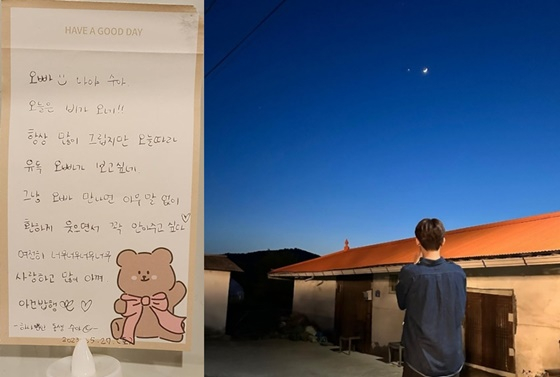 HAVE A GOOD DAY
오빠 나야 수아
오늘은 비가 오네!!
항상 많이 그립지만 오늘따라
유독 오빠가 보고싶네
그냥 오빠 만나면 아무 말 없이
환하게 웃으면서 꼭 안아주고 싶다
여전히 너무너무너무너무
사랑하고 많이 아껴
아켠밥행